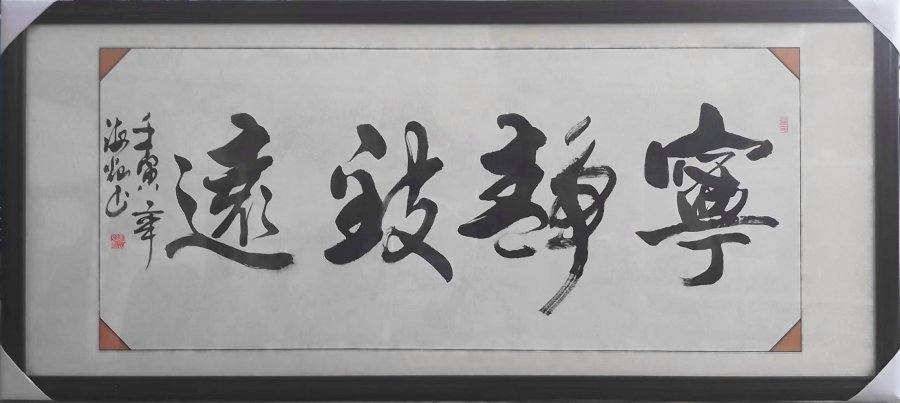 寧靜致遠
壬寅年
海灿书